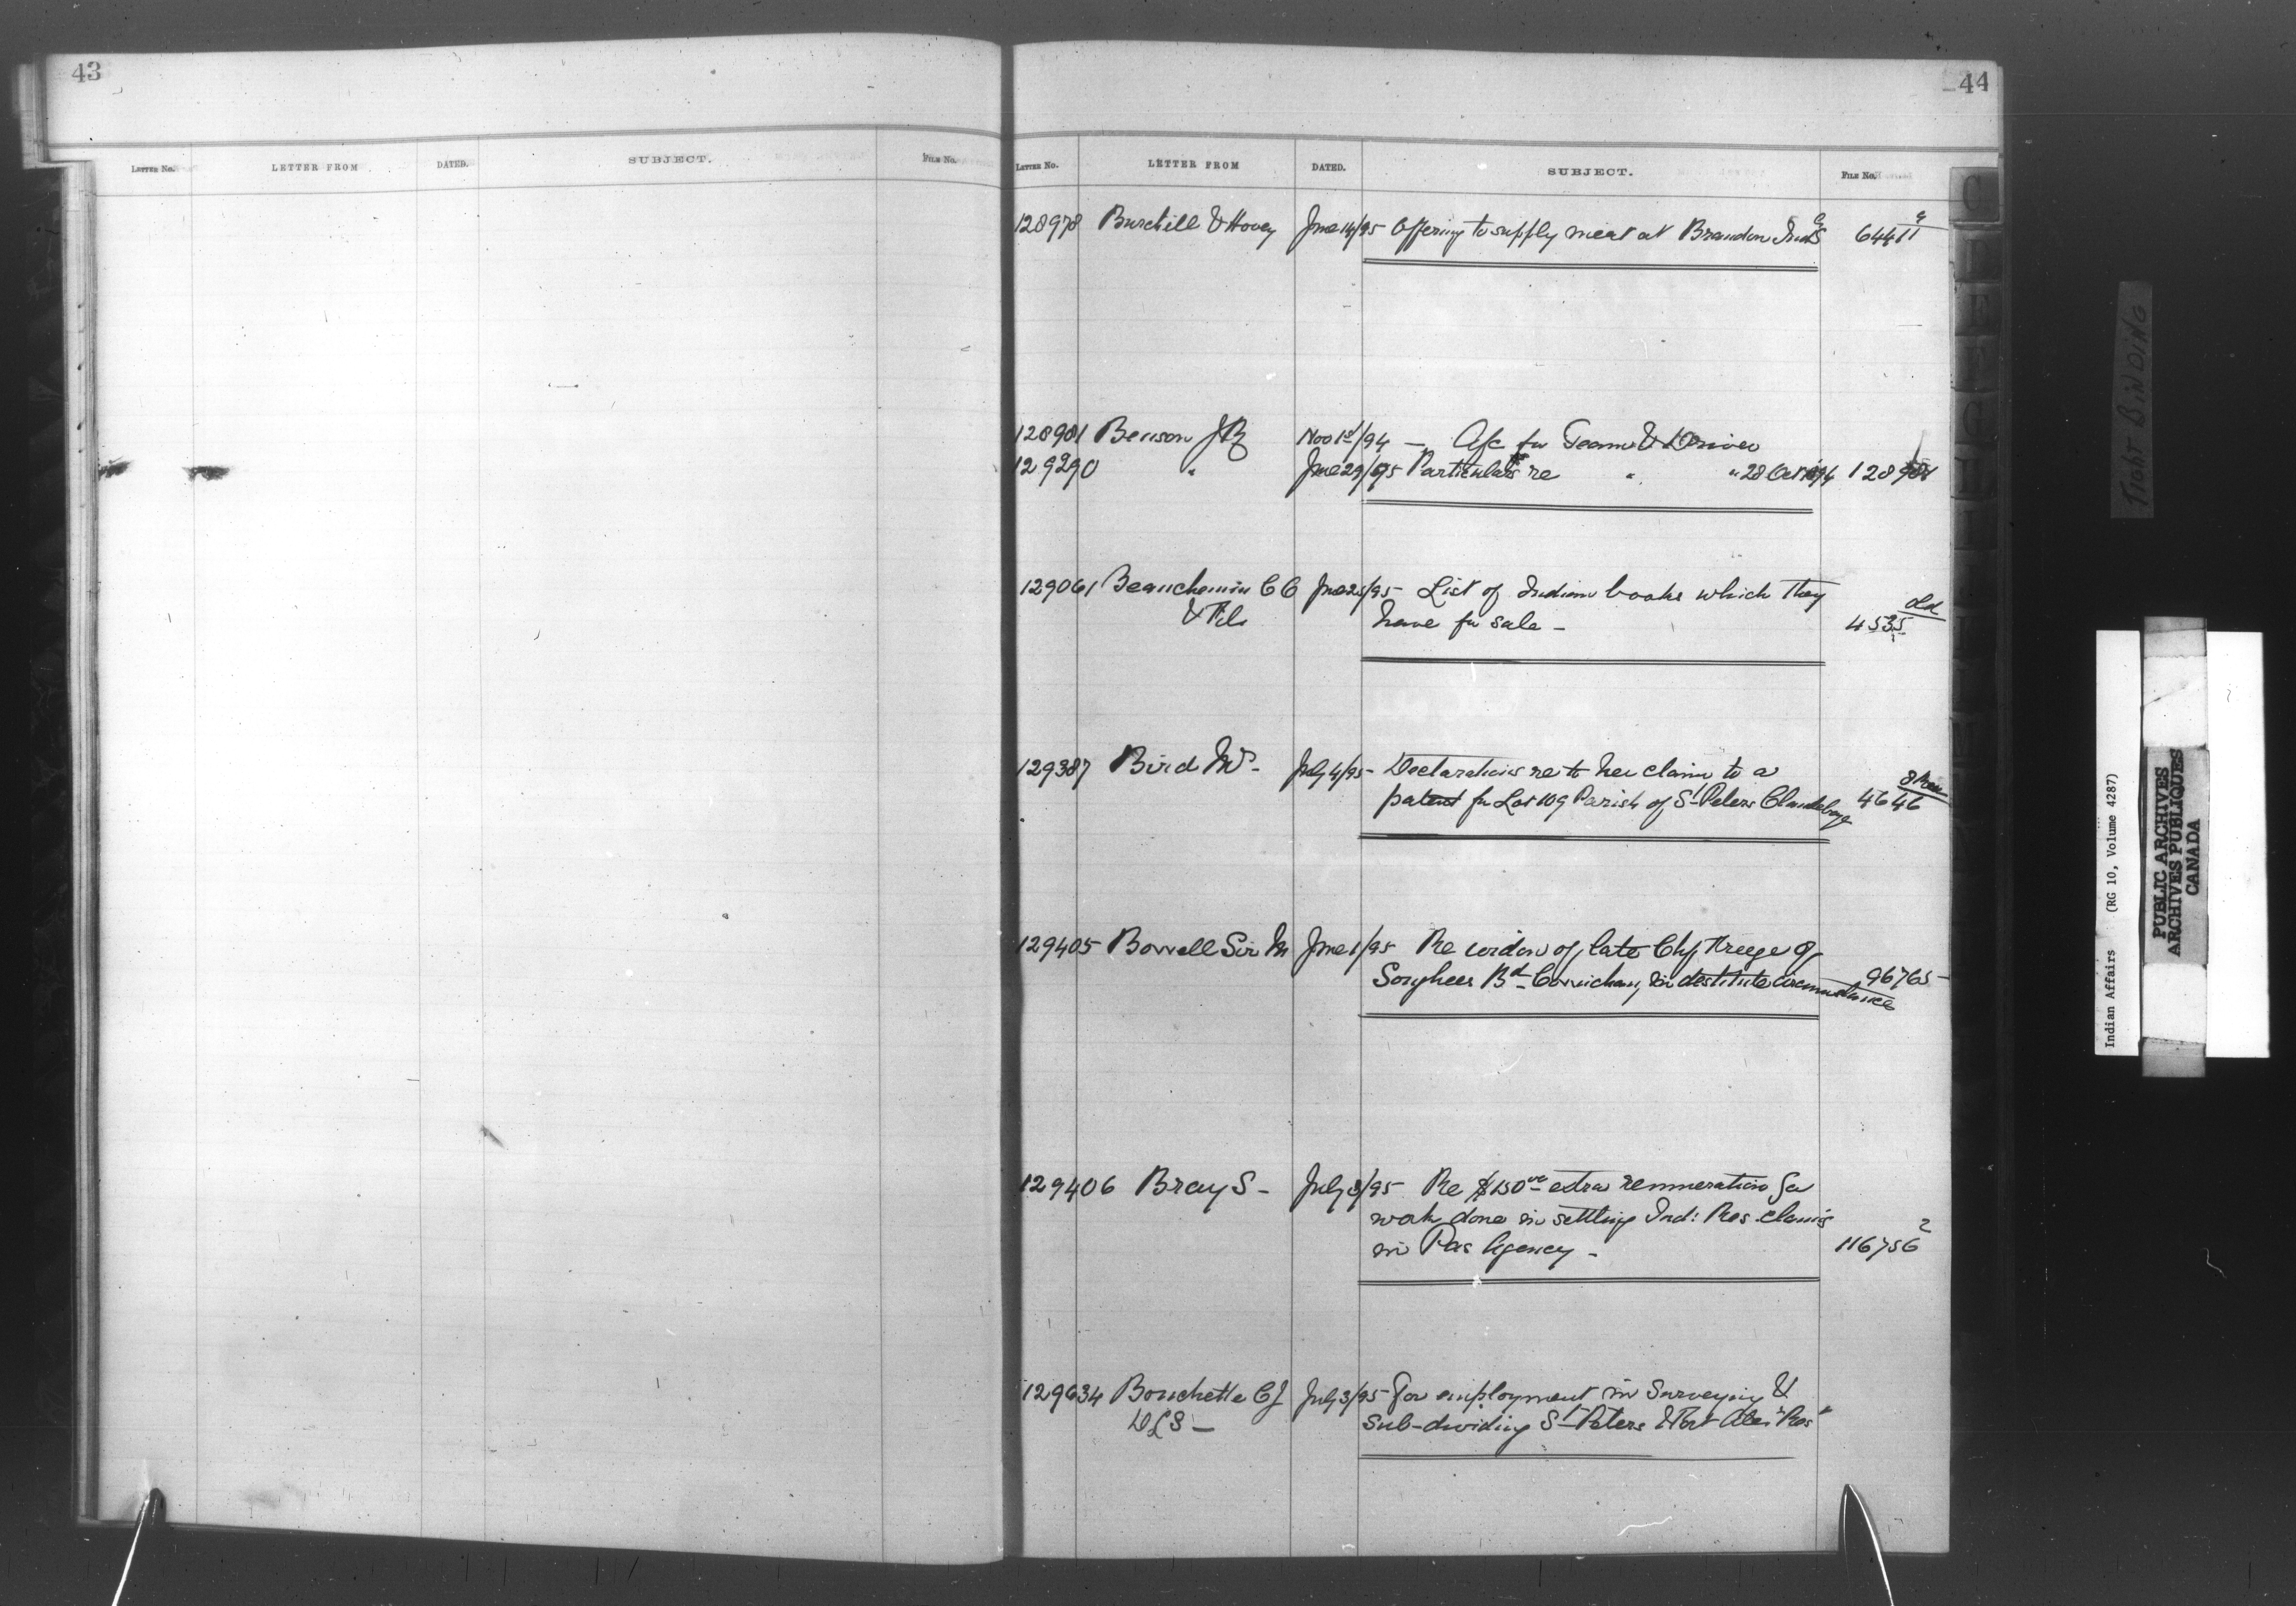 43
LETTER No. LETTER FROM DATED. SUBJECT. FILE No.
44
LETTER No. LETTER FROM DATED. SUBJECT. FILE No.
128978 Burchill & Hovey June 14/95 Offering to supply meat at Brandon Inds 64411
128981 Benson J R Nov 1st/94 — A/c for Team & Driver
129290 " June 29/95 Particulars re " " 28 Oct 1894
129061 Beauchemin C O June 25/95 - List of Indian books which they
& Fils have for sale - Old 4535
129387 Bird Mrs - July 4/95 - Declarations re to her claim to a
patent for Lot 109 Parish of St Peters Clandeboye 4646
129405 Bowell Sir M June 1/95 Re widow of late Chf
Songhees Bd Cowichan, in destitute circumstance 96765
129406 Bray S - July 3/95 Re $150 extra remuneration for
work done in settling Ind: Res. claims
in Pas Agency - 2 116756
129634 Bouchette C J July 3/95 For employment in Surveying &
DLS - Sub-dividing St Peters & Fort Alex Res
TIGHT BINDING
Indian Affairs (RG 10, Volume 4287)
PUBLIC ARCHIVES
ARCHIVES PUBLIQUES
CANADA